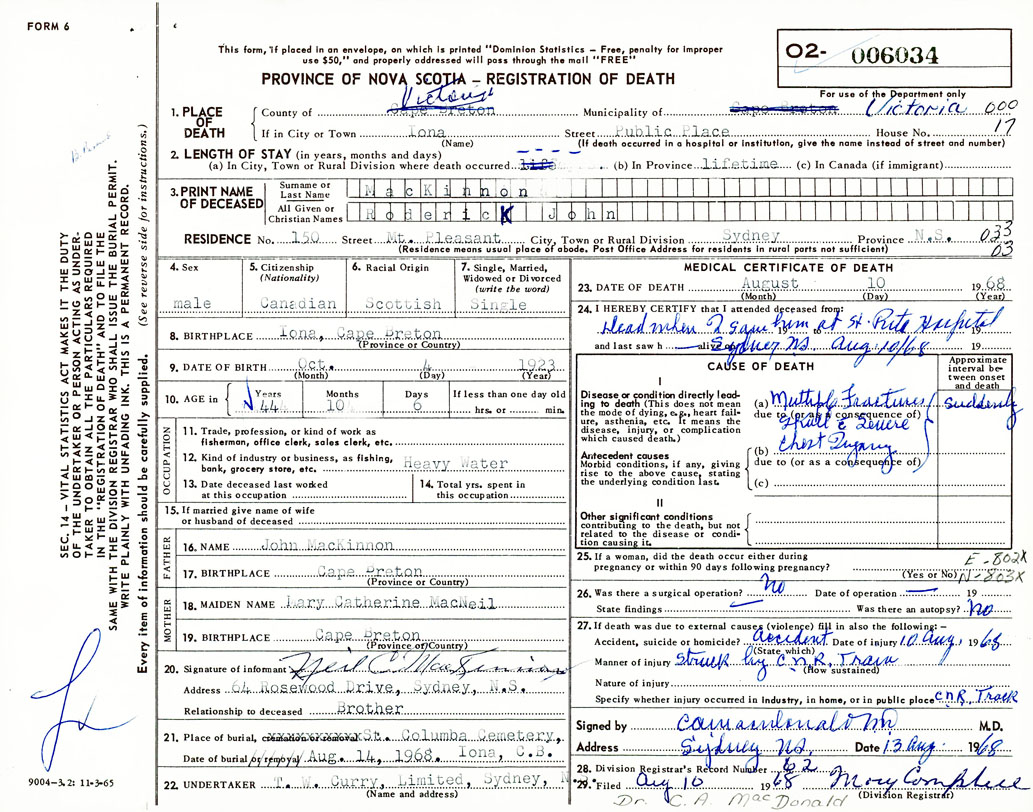 FORM 6
This form, if placed in an envelope, on which is printed "Dominion Statistics – Free, penalty for improper
use $50," and properly addressed will pass through the mail "FREE"
O2- 006034
PROVINCE OF NOVA SCOTIA – REGISTRATION OF DEATH
For use of the Department only
1. PLACE OF DEATH
County of Cape Breton Victoria Municipality of Cape Breton Victoria 000
If in City or Town Iona Street Public Place House No. 17
(Name) (If death occurred in a hospital or institution, give the name instead of street and number)
2. LENGTH OF STAY (in years, months and days)
(a) In City, Town or Rural Division where death occurred life (b) In Province lifetime (c) In Canada (if immigrant)
3. PRINT NAME OF DECEASED
Surname or Last Name MacKinnon
All Given or Christian Names Roderick John
RESIDENCE No. 150 Street Mt. Pleasant City, Town or Rural Division Sydney Province N.S. 033
(Residence means usual place of abode. Post Office Address for residents in rural parts not sufficient) 03
4. Sex
male
5. Citizenship
(Nationality)
Canadian
6. Racial Origin
Scottish
7. Single, Married,
Widowed or Divorced
(write the word)
Single
8. BIRTHPLACE Iona, Cape Breton
(Province or Country)
9. DATE OF BIRTH Oct. 4 1923
(Month) (Day) (Year)
10. AGE in Years 44 Months 10 Days 6 If less than one day old
hrs. or min.
OCCUPATION
11. Trade, profession, or kind of work as
fisherman, office clerk, sales clerk, etc.
12. Kind of industry or business, as fishing,
bank, grocery store, etc. Heavy Water
13. Date deceased last worked
at this occupation
14. Total yrs. spent in
this occupation
15. If married give name of wife
or husband of deceased
FATHER
16. NAME John MacKinnon
17. BIRTHPLACE Cape Breton
(Province or Country)
MOTHER
18. MAIDEN NAME Mary Catherine MacNeil
19. BIRTHPLACE Cape Breton
(Province or Country)
20. Signature of informant Neil C. MacKinnon
Address 64 Rosewood Drive, Sydney, N.S.
Relationship to deceased Brother
21. Place of burial, cremation or removal St. Columba Cemetery,
Date of burial or removal Aug. 14, 1968. Iona, C.B.
22. UNDERTAKER T. W. Curry, Limited, Sydney, N.S.
(Name and address)
MEDICAL CERTIFICATE OF DEATH
23. DATE OF DEATH August 10 1968
(Month) (Day) (Year)
24. I HEREBY CERTIFY that I attended deceased from:
Dead when I saw him at St. Rita Hospital
and last saw h alive on Sydney N.S. Aug. 10/68 19
CAUSE OF DEATH
Approximate interval between onset and death
I
Disease or condition directly leading
to death (This does not mean
the mode of dying, e.g., heart failure,
asthenia, etc. It means the
disease, injury, or complication
which caused death.)
(a) Multiple Fractures Suddenly
due to (or as a consequence of)
Skull & Severe
Antecedent causes
Morbid conditions, if any, giving
rise to the above cause, stating
the underlying condition last.
(b) Chest Injury
due to (or as a consequence of)
(c)
II
Other significant conditions
contributing to the death, but not
related to the disease or condition
causing it.
25. If a woman, did the death occur either during
pregnancy or within 90 days following pregnancy?
(Yes or No)
E-802X
N-803X
26. Was there a surgical operation? No Date of operation 19
State findings Was there an autopsy? No
27. If death was due to external causes (violence) fill in also the following:–
Accident, suicide or homicide? Accident Date of injury 10 Aug. 1968
(State which)
Manner of injury Struck by C.N.R. Train
(How sustained)
Nature of injury
Specify whether injury occurred in industry, in home, or in public place C.N.R. Track
Signed by M.D.
Address Sydney N.S. Date 13 Aug. 1968
28. Division Registrar's Record Number 62
29. Filed Aug 10 1968 Mary Campbell
(Division Registrar)
Dr. C. A. MacDonald
SEC. 14 – VITAL STATISTICS ACT MAKES IT THE DUTY
OF THE UNDERTAKER OR PERSON ACTING AS UNDERTAKER
TO OBTAIN ALL THE PARTICULARS REQUIRED
IN THE "REGISTRATION OF DEATH" AND TO FILE THE
SAME WITH THE DIVISION REGISTRAR WHO SHALL ISSUE THE BURIAL PERMIT.
WRITE PLAINLY WITH UNFADING INK. THIS IS A PERMANENT RECORD.
Every item of information should be carefully supplied. (See reverse side for instructions.)
9004-3.2: 11-3-65